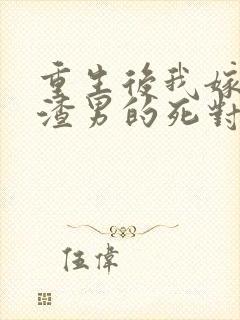 重生後我嫁
渣男的死對
伍偉